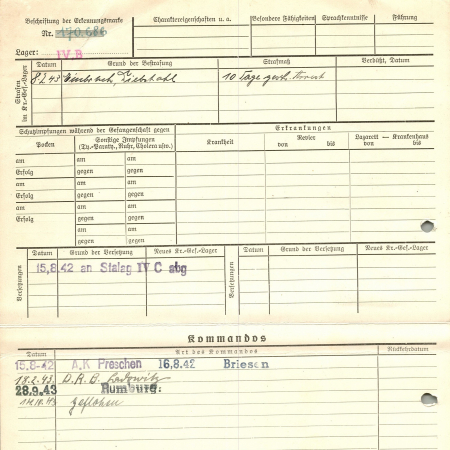 Beschriftung der Erkennungsmarke
Charaktereigenschaften u. a.
Besondere Fähigkeiten
Sprachkenntnisse
Führung
Nr. 170.686
Lager: IV.B
Strafen im Kr.-Gef.-Lager
Datum
Grund der Bestrafung
Strafmaß
Verbüßt, Datum
8.2.43 Einbruch u. Diebstahl 10 Tage gesch. Arrest
Schutzimpfungen während der Gefangenschaft gegen
Erkrankungen
Pocken
Sonstige Impfungen
(Ty.-Paraty., Ruhr, Cholera usw.)
Krankheit
Revier
von bis
Lazarett — Krankenhaus
von bis
am am
Erfolg gegen
am am
Erfolg gegen
am am
Erfolg gegen
am am
gegen
am
gegen
Versetzungen
Datum
Grund der Versetzung
Neues Kr.-Gef.-Lager
Versetzungen
Datum
Grund der Versetzung
Neues Kr.-Gef.-Lager
15.8.42 an Stalag IV C abg
Kommandos
Datum
Art des Kommandos
Rückkehrdatum
15.8-42 A.K Preschen 16.8.42 Briesen
18.2.43. D.R.B.
28.9.43 Rumburg.
geflohen